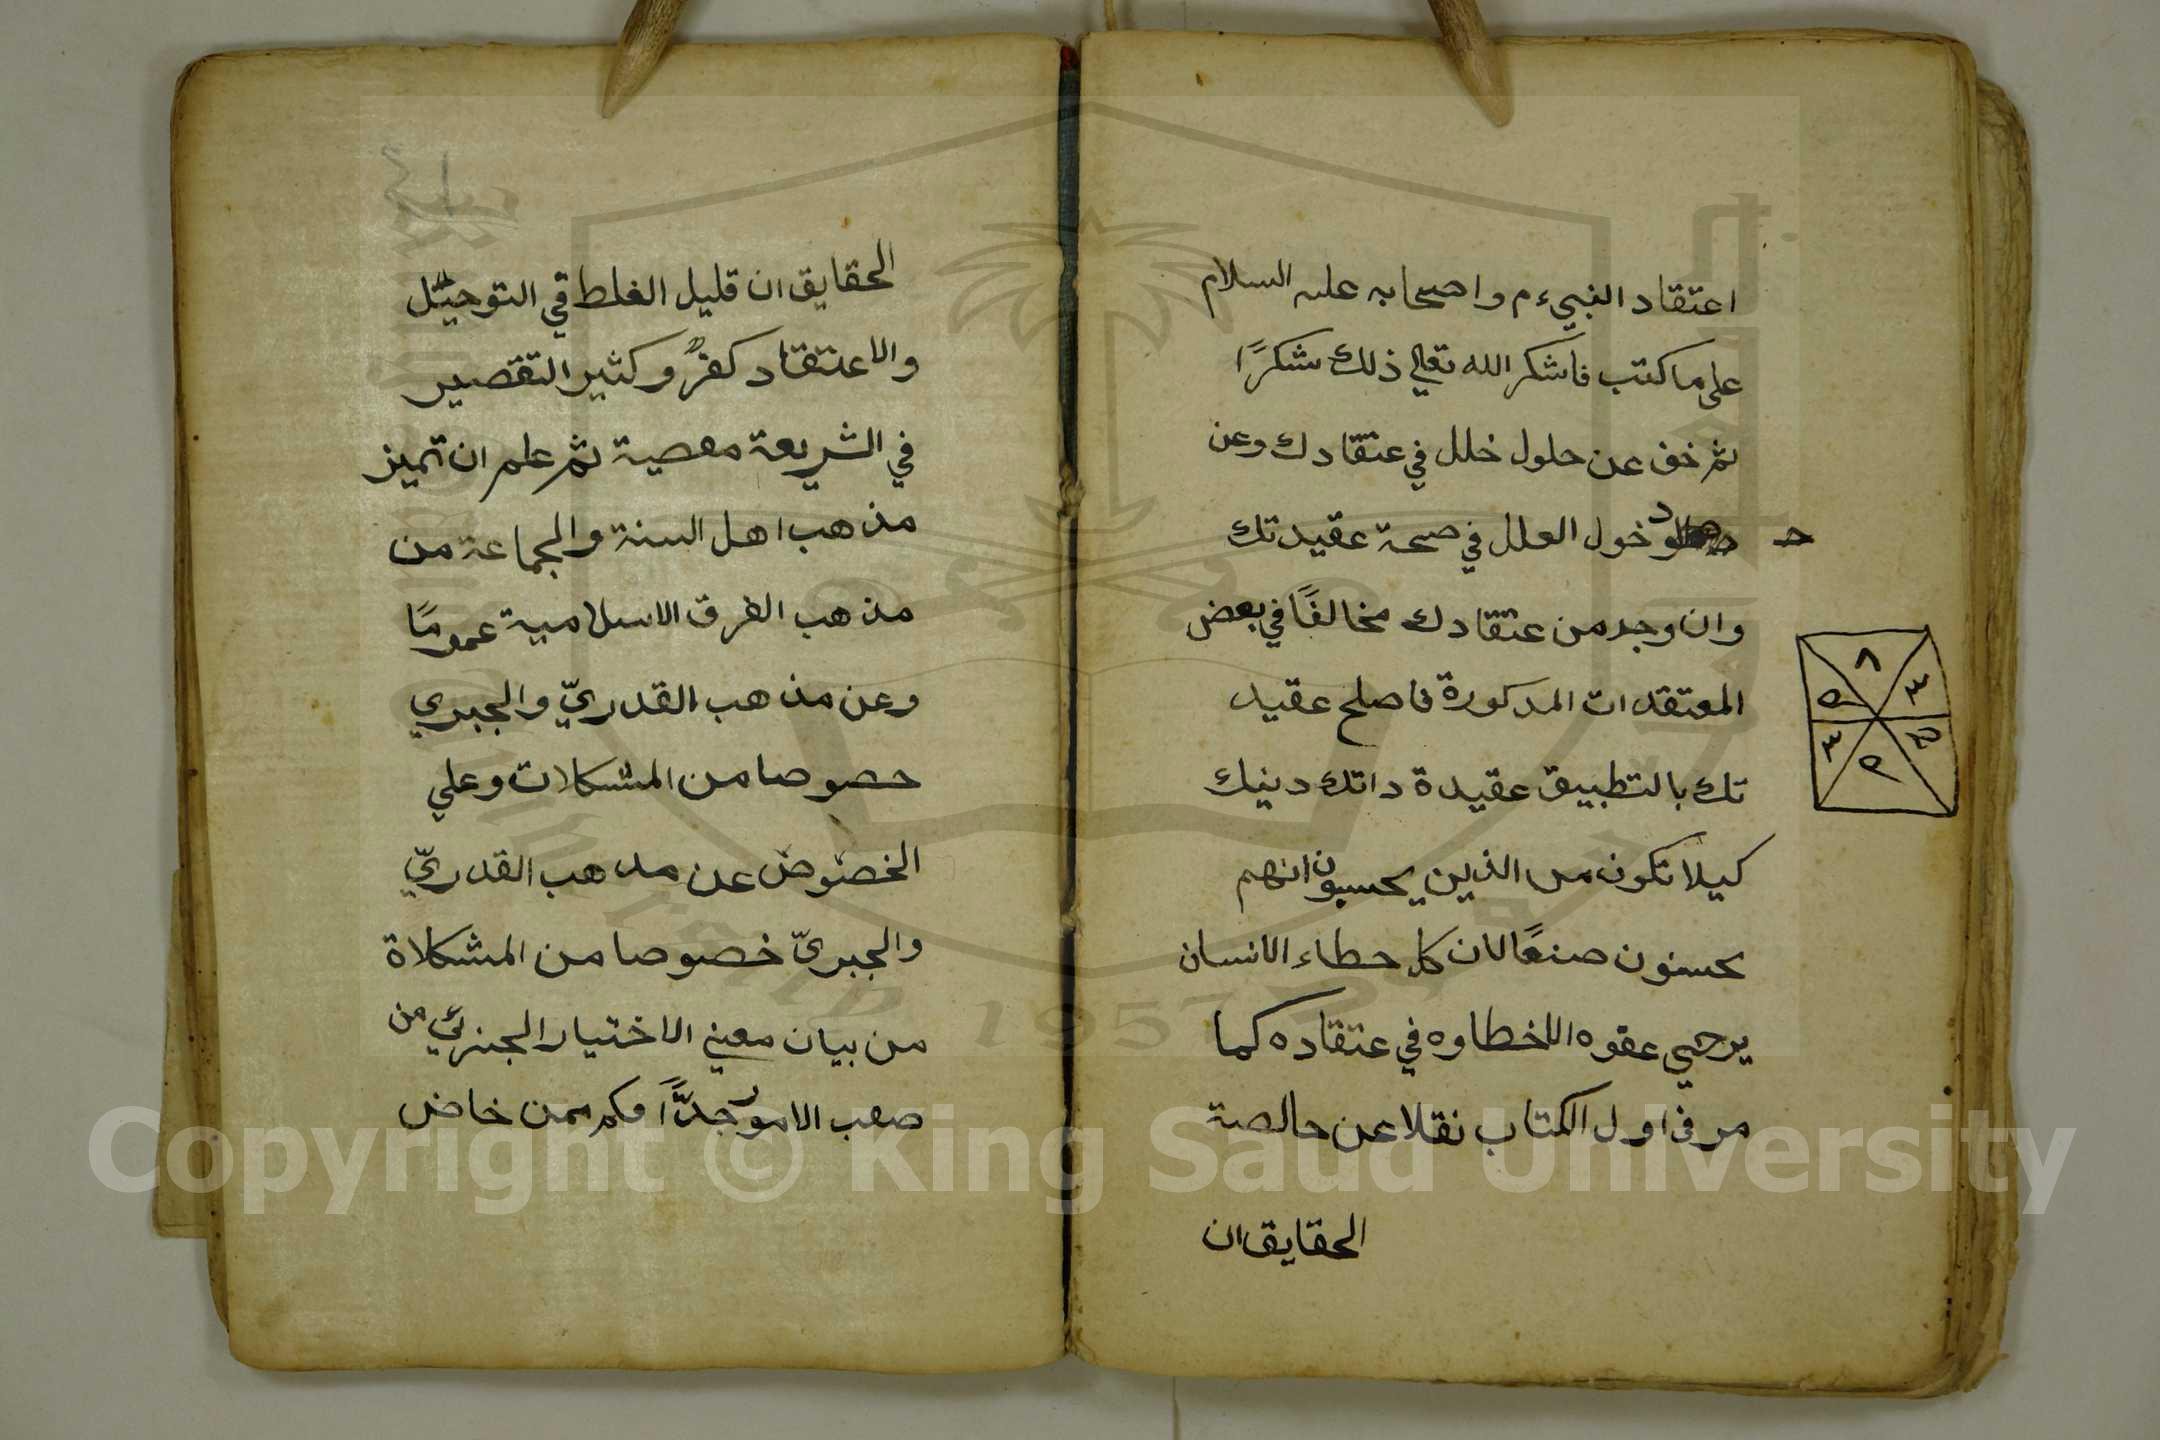 اعتقاد النبيء م واصحابه عليه السلام
على ما كتب فاشكر الله تعالى ذلك شكرًا
ثم خف عن حلول خلل في عتقادك وعن
دخول العلل في صحة عقيدتك
وان وجد من عتقادك مخالفًا في بعض
المعتقدات المدكورة فاصلح عقيد
تك بالتطبيق عقيدة داتك دينك
كيلا تكون من الذين يحسبون انهم
يحسنون صنعًا لان كل حطاء الانسان
يرجي عفوه الاخطاوه في عتقاده كما
مر في اول الكتاب نقلا عن حالصة
الحقايق ان
ح
٨
٣
٥
٣
٢
الحقايق ان قليل الغلط في التوحيد
والاعتقاد كفرٌ وكثير التقصير
في الشريعة معصية ثم علم ان تميز
مذهب اهل السنة والجماعة من
مذهب الفرق الاسلامية عمومًا
وعن مذهب القدريّ والجبري
حصوصا من المشكلات وعلي
الخصوص عن مدهب القدريّ
والجبريّ خصوصا من المشكلاة
من بيان معني الاختيار الجزئي من
صعب الامور جدًّا فكم ممن خاض
Copyright © King Saud University
1957